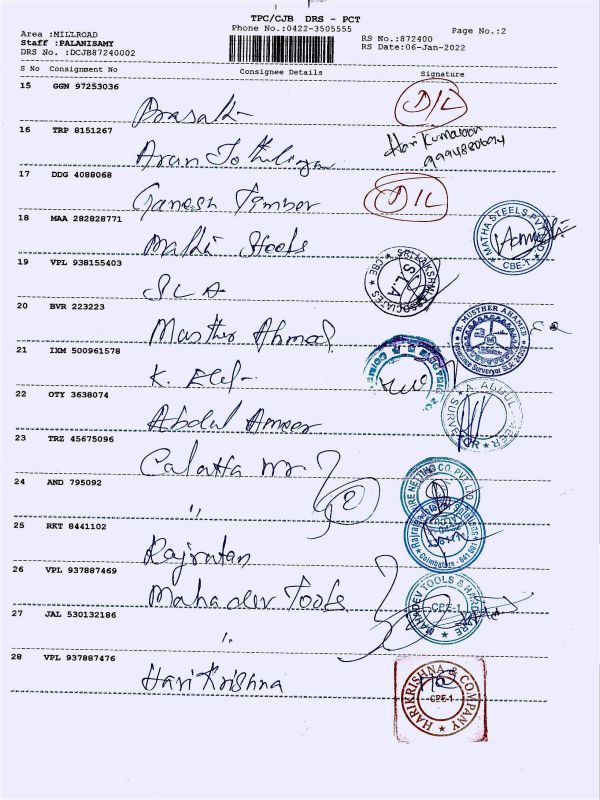 TPC/CJB DRS - PCT
Phone No.:0422-3505555
Page No.:2
Area :MILLROAD
Staff :PALANISAMY
DRS No. :DCJB87240002
RS No.:872400
RS Date:06-Jan-2022
S No Consignment No Consignee Details Signature
15 GGN 97253036
D/L
16 TRP 8151267
Arun
Hari Kumaran
17 DDG 4088068
Ganesh Timber
D/L
18 MAA 282828771
MATHA STEELS PVT LTD
CBE-1
19 VPL 938155403
SLA
S.L.A
CBE
20 BVR 223223
Musther Ahmed
B. MUSTHER AHAMED
21 IXM 500961578
K.
22 OTY 3638074
Abdul Ameer
A. ABDUL AMEER
SURVEYOR
23 TRZ 45675096
Calcutta
WIRE NETTING CO. PVT. LTD
24 AND 795092
"
25 RKT 8441102
Rajratan
Coimbatore - 641 001
26 VPL 937887469
Mahadev Tools
MAHADEV TOOLS & HARDWARE
CPE-1
27 JAL 530132186
"
28 VPL 937887476
Hari Krishna
HARIKRISHNA & COMPANY
CPE-1